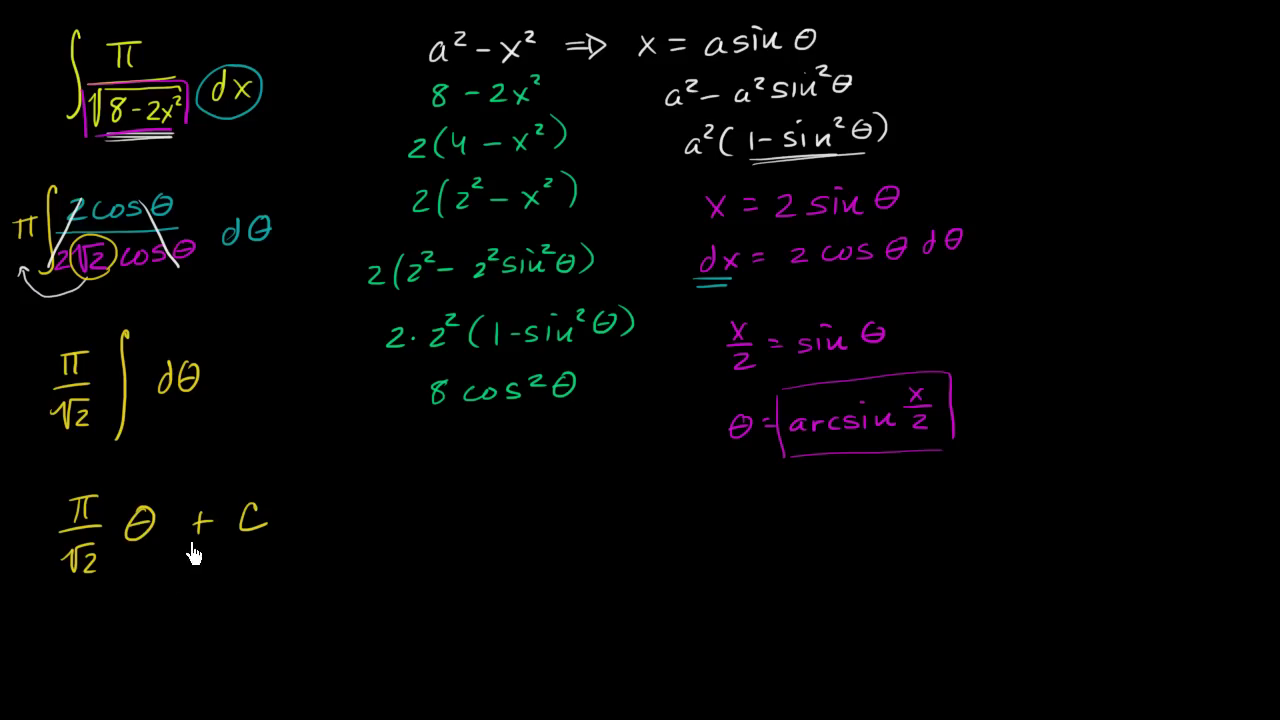 ∫ π/√(8 - 2x²) dx
π ∫ 2 cos θ/(2√2 cos θ) dθ
π/√2 ∫ dθ
π/√2 θ + C
a² - x² ⇒ x = a sin θ
8 - 2x²
2(4 - x²)
2(2² - x²)
2(2² - 2² sin² θ)
2 · 2² (1 - sin² θ)
8 cos² θ
a² - a² sin² θ
a² (1 - sin² θ)
x = 2 sin θ
dx = 2 cos θ dθ
x/2 = sin θ
θ = arcsin x/2